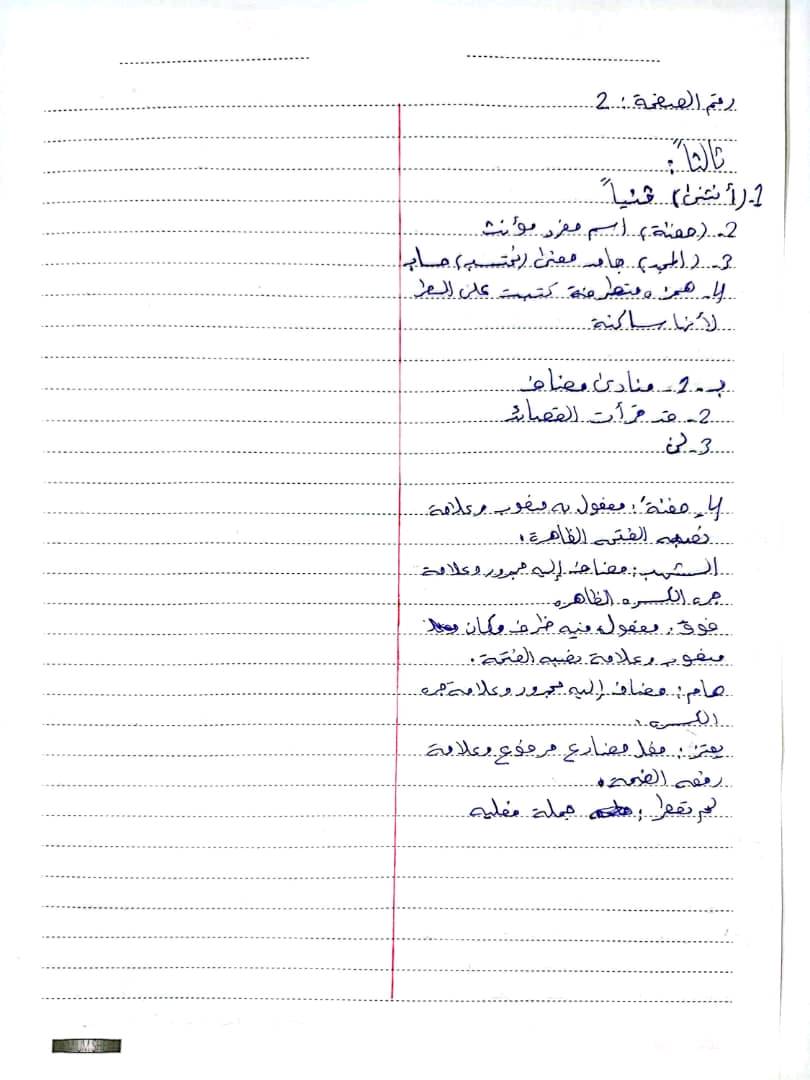 رقم الصفحة : 2
ثالثاً :
1-(أنثى)
2- (حفنة) اسم مفرد مؤنث
3- جامد معنى
4- همزة متطرفة كتبت على السطر
لأنها ساكنة
ب- 1- منادى مضاف
2- قد قرأت القصائد
3- لن
4- حفنة : مفعول به منصوب وعلامة
نصبه الفتحه الظاهرة .
الشهب : مضاف إليه مجرور وعلامة
جره الكسره الظاهره
فوق : مفعول فيه ظرف مكان
منصوب وعلامة نصبه الفتحة .
هام : مضاف إليه مجرور وعلامة جره
الكسره .
يعتز : فعل مضارع مرفوع وعلامة
رفعه الضمة .
جملة فعليه